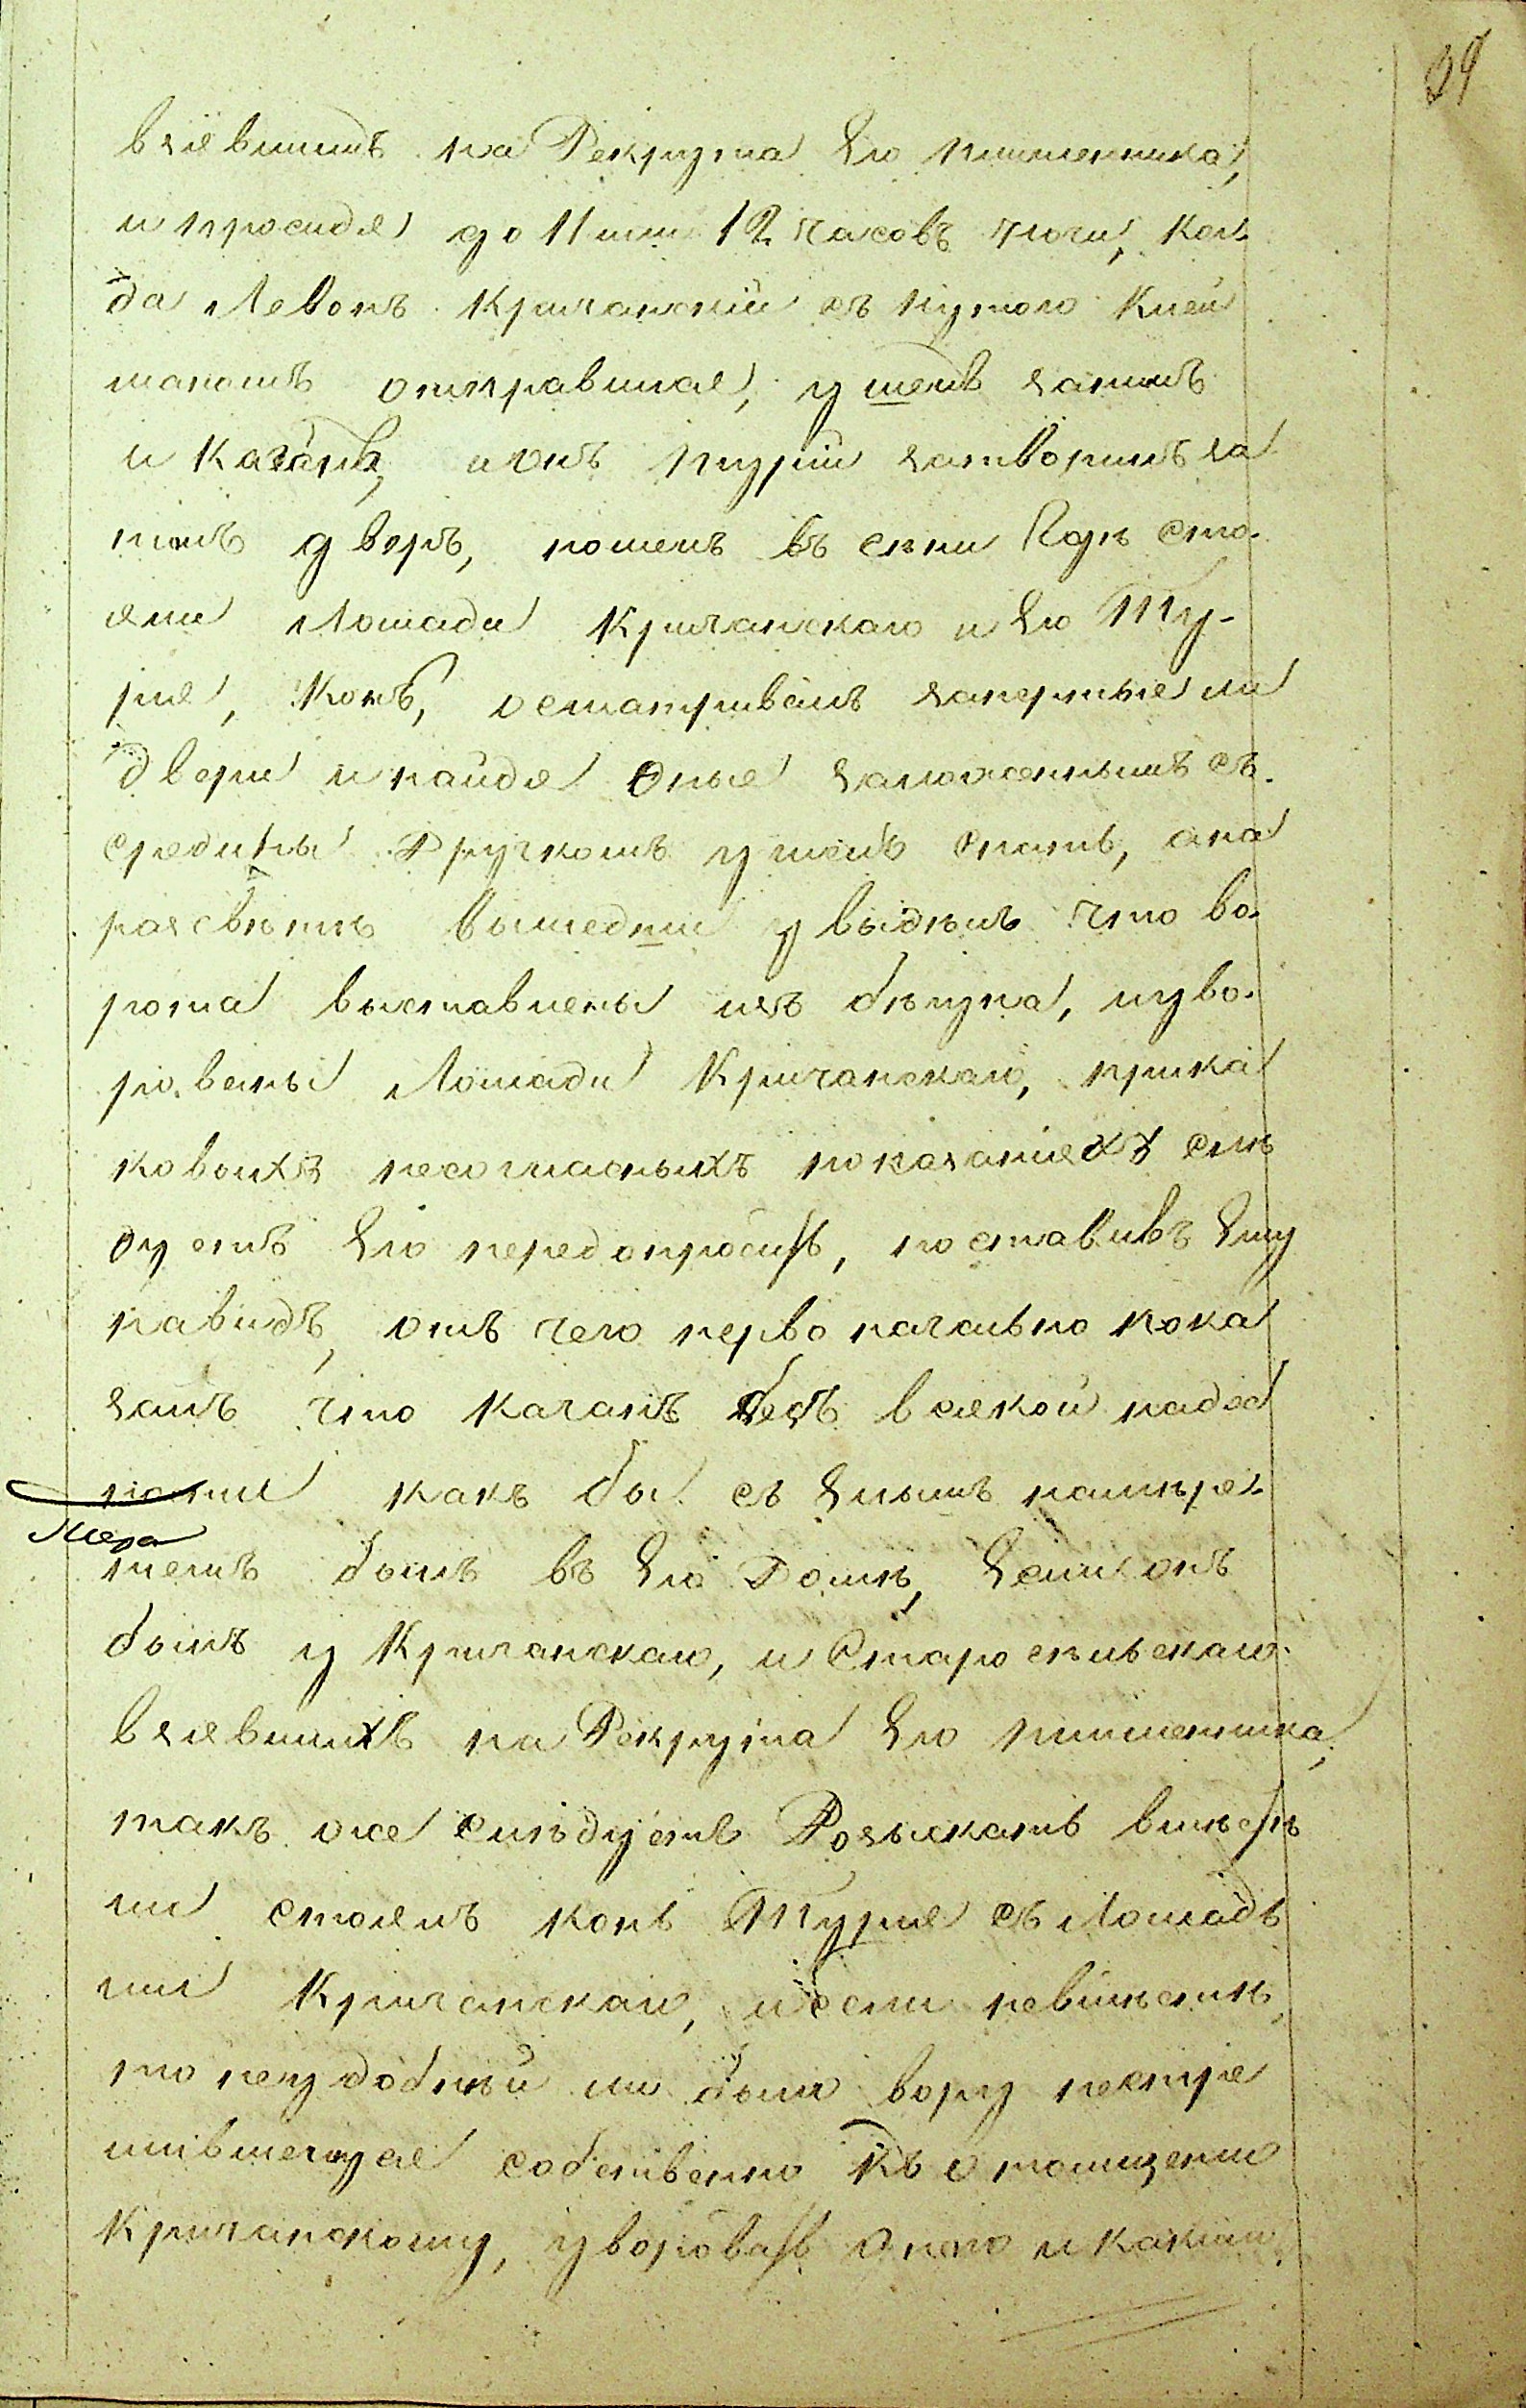 39
взявшимъ на Рекрута Его племенника,
и просидя до 11 или 12 часовъ ночи, ког-
да Левонъ Кричанскій съ путого Клей
маномъ отправился, ушелъ затимъ
и Качанъ, и онъ Турій затворивъ за
тимъ дверъ, пошелъ въ сѣни Кдѣ сто-
яли Лошади Кричанскаго и Его Ту-
рія, Конь, осматривалъ запертыели
двери и найдя Оные заложеннымъ съ
средины Дручкомъ ушелъ спать, ана
разсвѣтѣ вышедши увыдѣлъ что во-
рота выставлены изъ бѣгуна, иуво-
рованы Лошади Кричанскаго, прика
ковыхъ несогласныхъ показаніяхъ слѣ
дуетъ Его передопросить, поставивъ Ему
навидъ, отъ чего перво начально пока
залъ что Качанъ безъ всякой надоб
ности какъ бы съ Енымъ намѣре-
Мера
темъ былъ въ Его Домѣ, Если онъ
былъ у Кричанскаго, и Старосѣльскаго
взявшихъ на Рекрута Его племенника,
такъ же слѣдуетъ Розыскать вмѣстѣ
ли стоялъ конь Турія съ Лошадь
ми Кричанскаго, и если невмѣстѣ,
то неудобнѣй ли было вору нестре
мившемуся собственно къ отомщению
Кричанскому, уворовать Онего икакіи